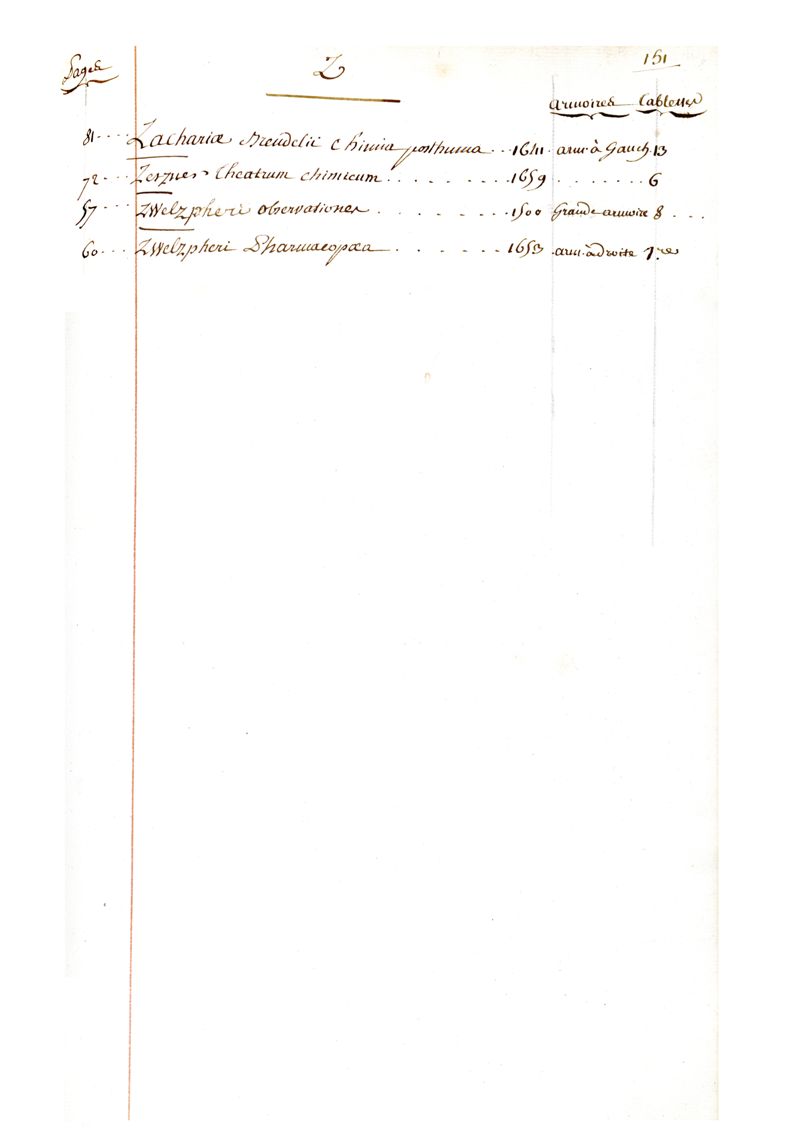 Pages Z 151
armoires Tablettes
81 .... Zachariæ Brendelii Chimia posthuma .. 1641 . arm. à Gauch. 13
72 ... Zerzner Theatrum chimicum ........ 1659 ........ 6
57 .... ZWelzpheri observationes ....... 1500 Grande armoire 8 ...
60 ... ZWelzpheri Pharmacopœa ...... 1653 . arm. à droite 1.re